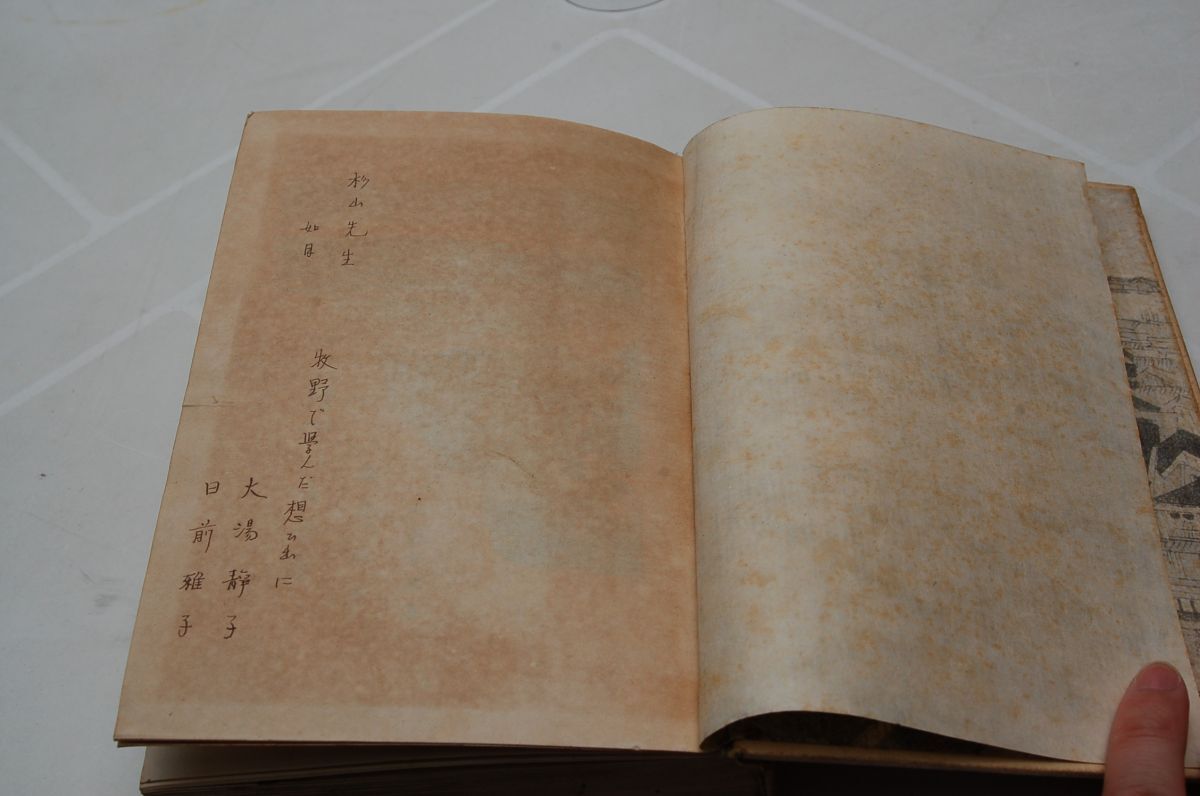 杉山先生
如月
牧野で學んだ想い出に
大湯静子
日前雅子